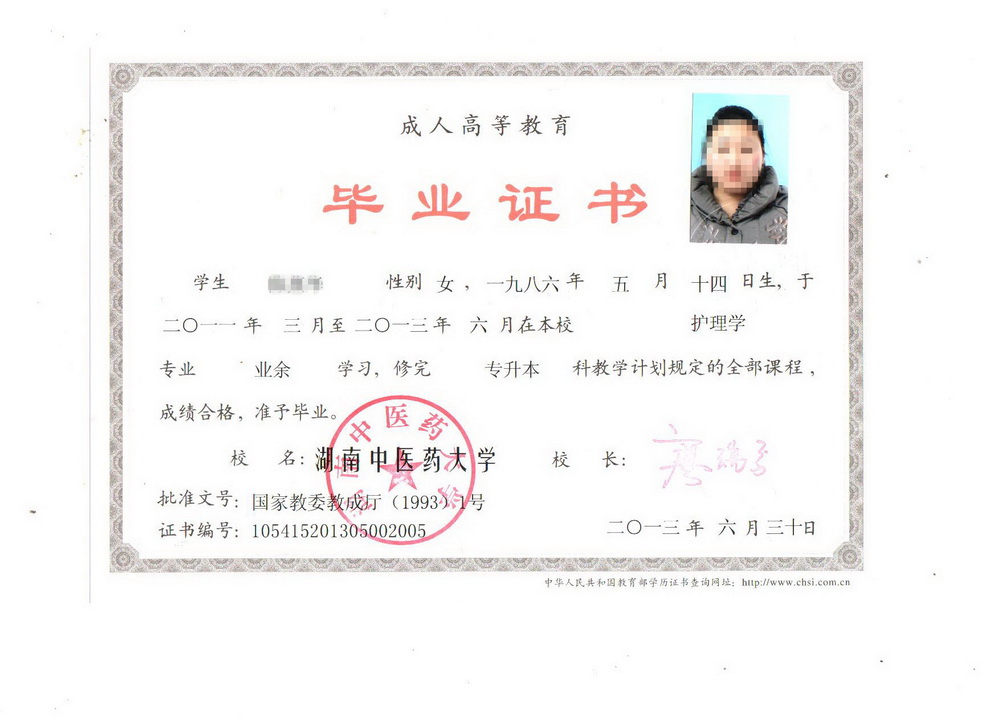 成人高等教育
毕业证书
学生 性别 女，一九八六年 五 月 十四 日生，于
二〇一一年 三 月至二〇一三年 六 月在本校 护理学
专业 业余 学习，修完 专升本 科教学计划规定的全部课程，
成绩合格，准予毕业。
校 名：湖南中医药大学 校 长：
湖南中医药大学
批准文号：国家教委教成厅（1993）1号
证书编号：105415201305002005 二〇一三年 六 月三十日
中华人民共和国教育部学历证书查询网址：http://www.chsi.com.cn